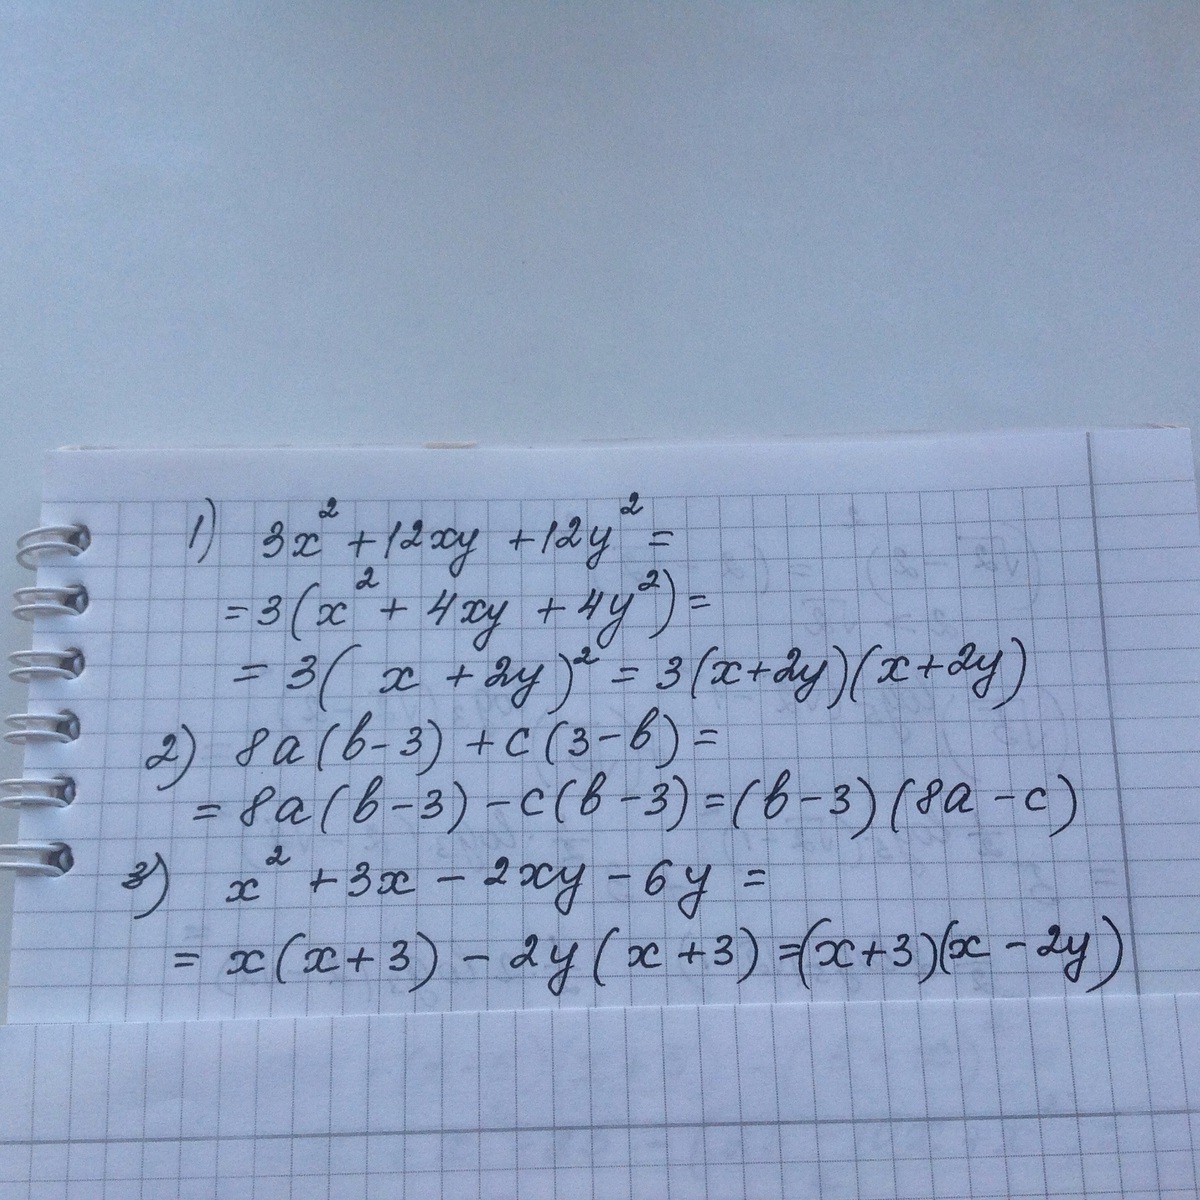 1) 3x² + 12xy + 12y² =
= 3(x² + 4xy + 4y²) =
= 3( x + 2y)² = 3(x+2y)(x+2y)
2) 8a(в-3) + c(3-в) =
= 8a(в-3) - c(в-3) = (в-3)(8a-c)
3) x² + 3x - 2xy - 6y =
= x(x+3) - 2y(x+3) = (x+3)(x-2y)